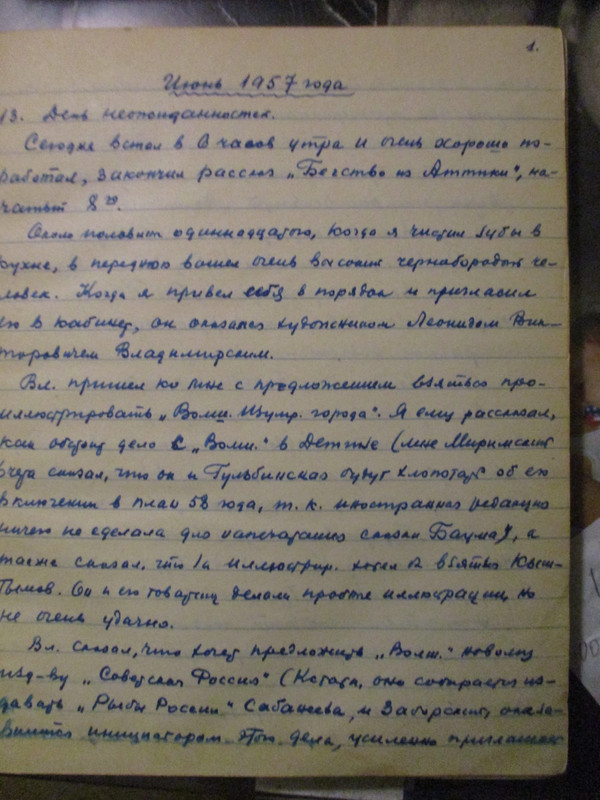 1.
Июнь 1957 года
13. День неожиданностей.
Сегодня встал в 6 часов утра и очень хорошо по-
работал, закончил рассказ „Бегство из Аттики“, на-
чатый 8го.
Около половины одиннадцатого, когда я чистил зубы в
кухне, в переднюю вошел очень высокий чернобородый че-
ловек. Когда я привел себя в порядок и пригласил
его в кабинет, он оказался художником Леонидом Вик-
торовичем Владимирским.
Вл. пришел ко мне с предложением взяться про-
иллюстрировать „Волш. Изумр. города“. Я ему рассказал,
как обстоит дело с „Волш.“ в Детгизе (мне Миримский
вчера сказал, что он и Гульбинская будут хлопотать об его
включении в план 58 года, т. к. иностранная редакция
ничего не сделала для напечатания сказки Баума), а
также сказал, что за иллюстрир. хотел взяться Кыш-
тымов. Он и его товарищ делали пробные иллюстрации, но
не очень удачно.
Вл. сказал, что хочет предложить „Волш.“ новому
изд-ву „Советская Россия“ (Кстати, оно собирается из-
давать „Рыбы России“ Сабанеева, и Заборский, оказа-
вшийся инициатором этого дела, усиленно приглашает